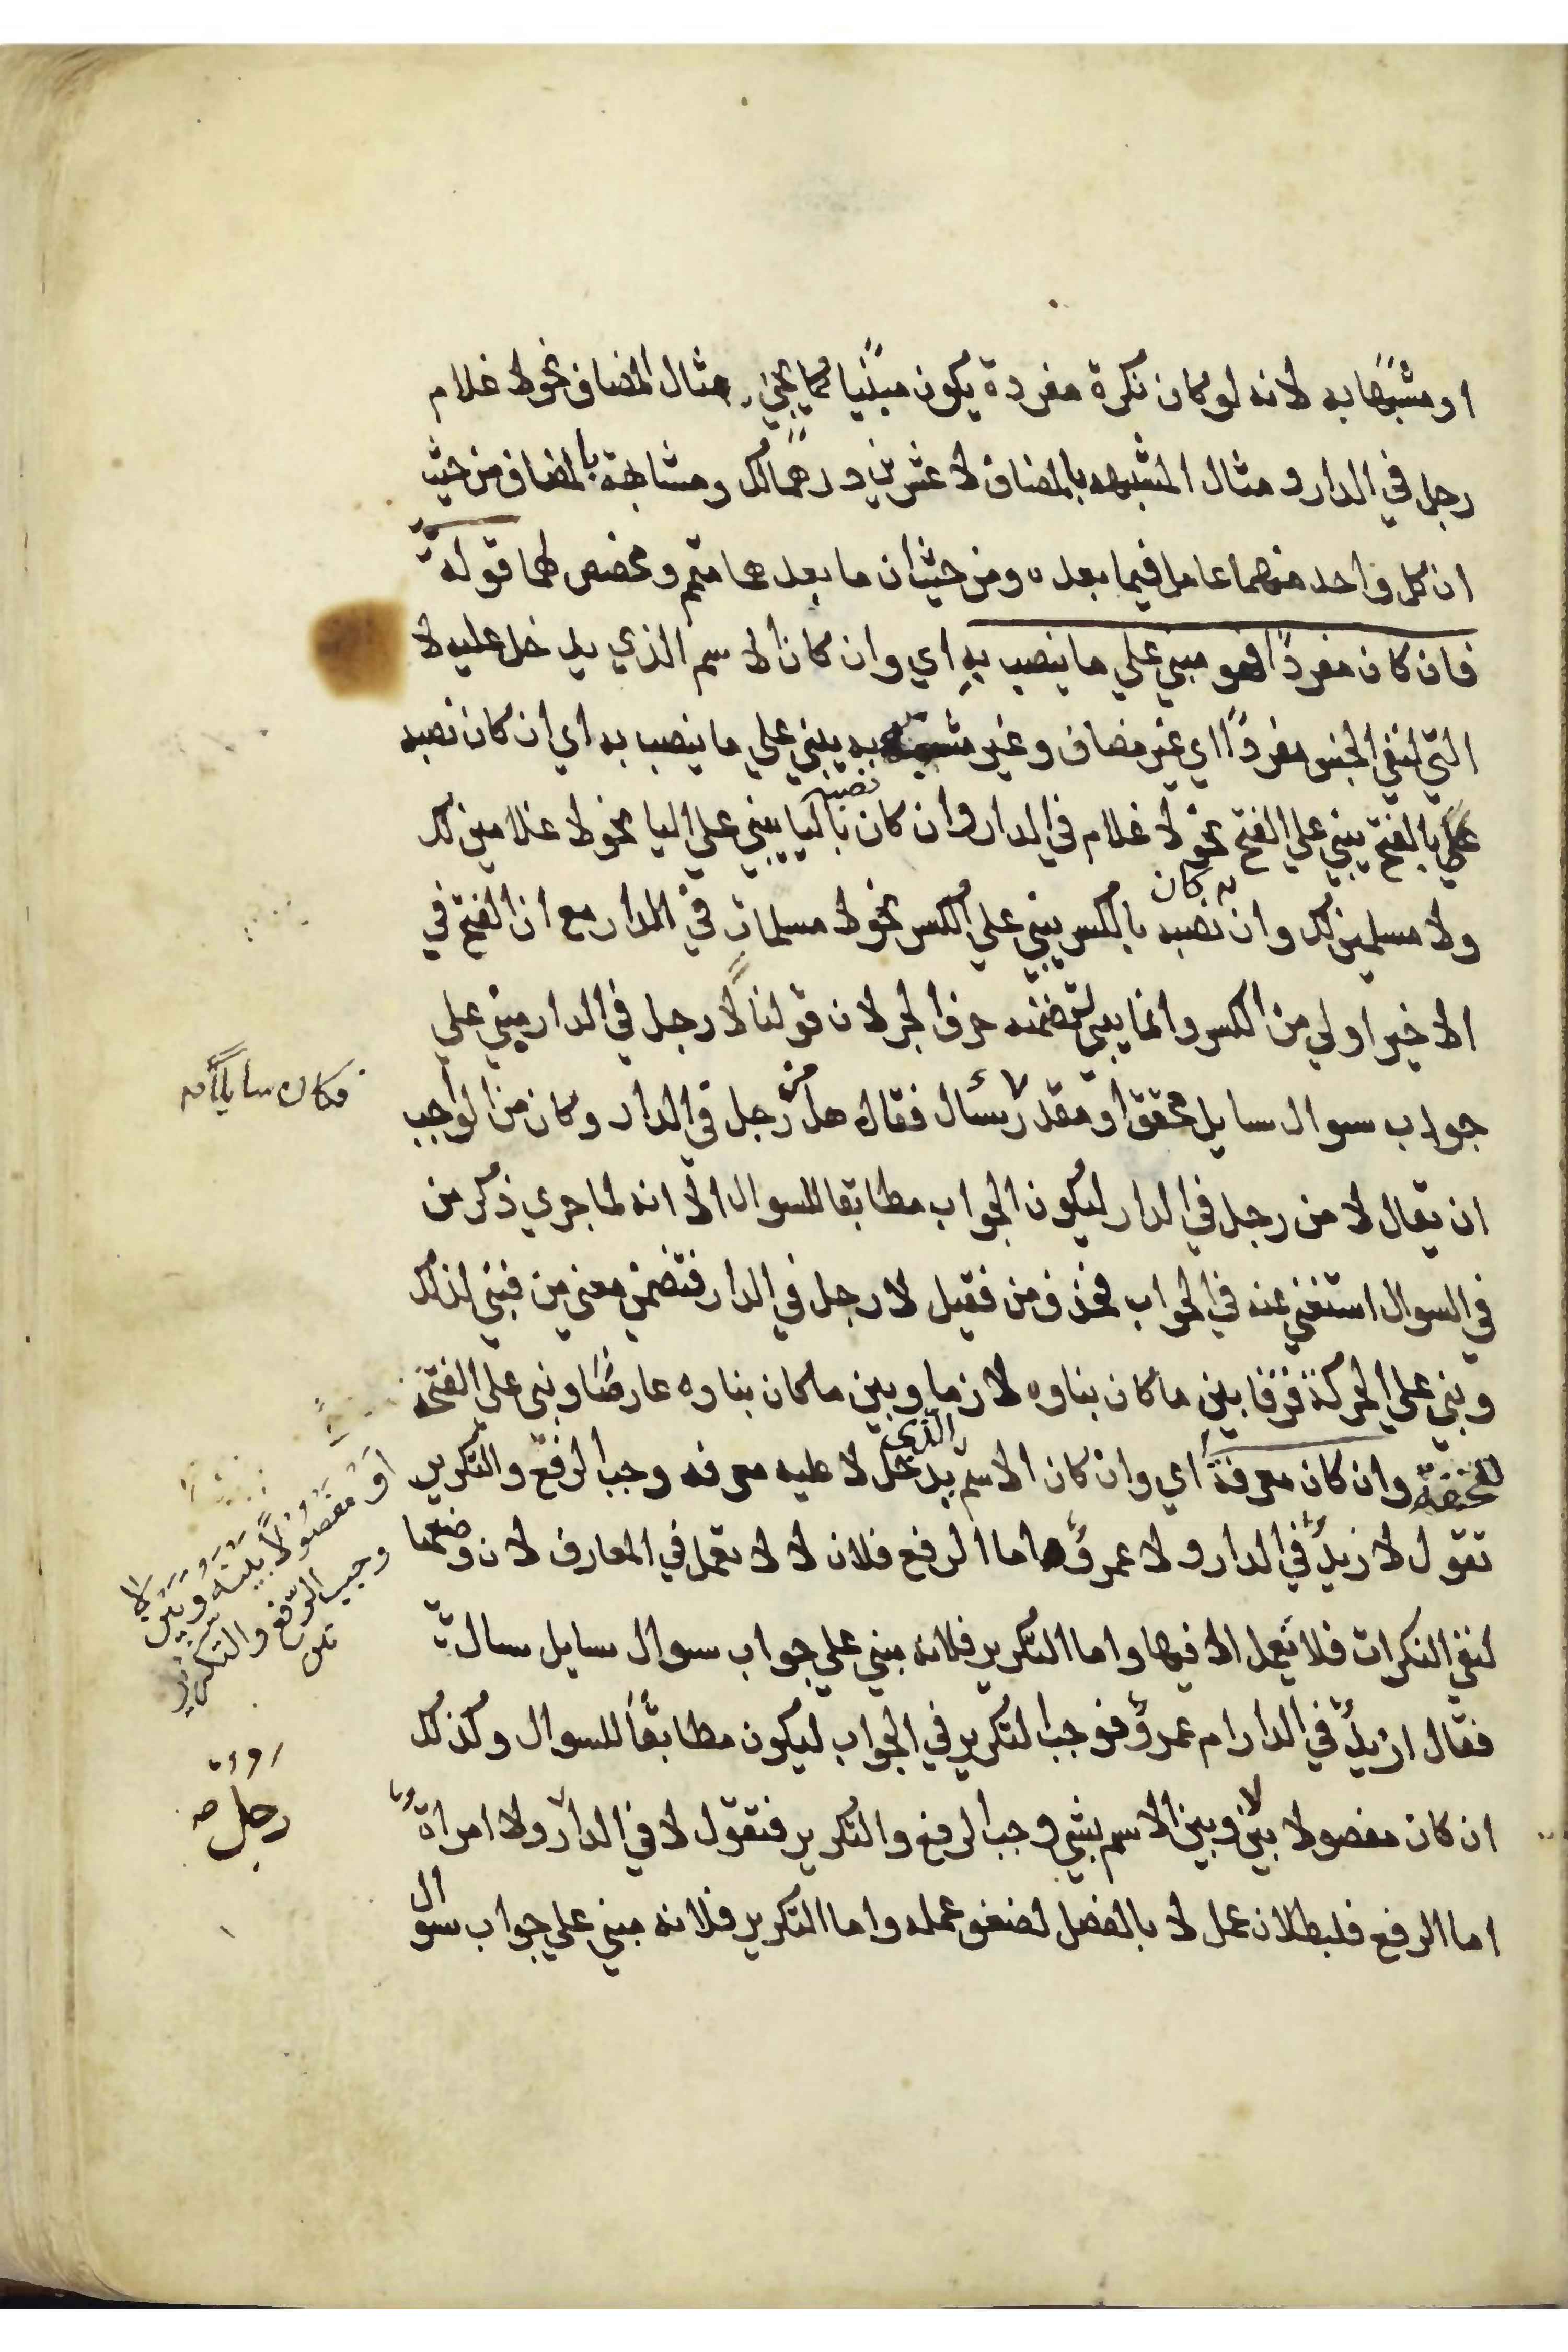 او مشبها به لانه لو كان نكرة مفردة يكون مبنيا كما يجئ مثال المضاف نحو لا غلام
رجل في الدار و مثال المشبهه بالمضاف لا عشرين درهما لك ومشابهة بالمضاف من حيث
ان كل واحد منهما عامل فيما بعده ومن حيث ان ما بعدهما متمم ومخصص لهما قوله
فان كان مفردا فهو مبني علي ما ينصب به اي وان كان الاسم الذي يدخل عليه لا
التي لنفي الجنس مفردا اي غير مضاف وغير مشبه به يبني علي ما ينصب به اي ان كان نصبه
بالفتح يبني علي الفتح نحو لا غلام في الدار وان كان نصبه باليا يبني علي اليا نحو لا غلامين لك
ولا مسلمين لك وان كان نصبه بالكسر يبني علي الكسر نحو لا مسلمات في الدار مع ان الفتح في
الاخير اولي من الكسر وانما يبني لتضمنه حرف الجر لان قولنا لا رجل في الدار مبني علي
جواب سوال سايل محقق او مقدر سأل فقال هل من رجل في الدار وكان من الواجب
فكان سايلا
ان يقال لا من رجل في الدار ليكون الجواب مطابقا للسوال الا انه لما جري ذكر من
في السوال استغني عنه في الجواب فحذف من فقيل لا رجل في الدار فتضمن معني من فبني لذلك
وبني علي الحركة فرقا بين ما كان بناوه لازما وبين ما كان بناوه عارضا وبني علي الفتحة
للخفة وان كان معرفة اي وان كان الاسم الذي يدخل لا عليه معرفه وجب الرفع والتكرير
او مفصولا بينه وبين لا
وجب الرفع والتكرير
تقول لا زيد في الدار ولا عمرو اما الرفع فلان لا لا تعمل في المعارف لان وضعها
لنفي النكرات فلا تعمل الا فيها واما التكرير فلانه مبني علي جواب سوال سايل سال
فقال ازيد في الدار ام عمرو فوجب التكرير في الجواب ليكون مطابقا للسوال وكذلك
ان كان مفصولا بين لا وبين الاسم بشي وجب الرفع والتكرير فتقول لا في الدار ولا امراة
رجل صح
اما الرفع فلبطلان عمل لا بالفصل لضعف عمله واما التكرير فلانه مبني علي جواب سوال